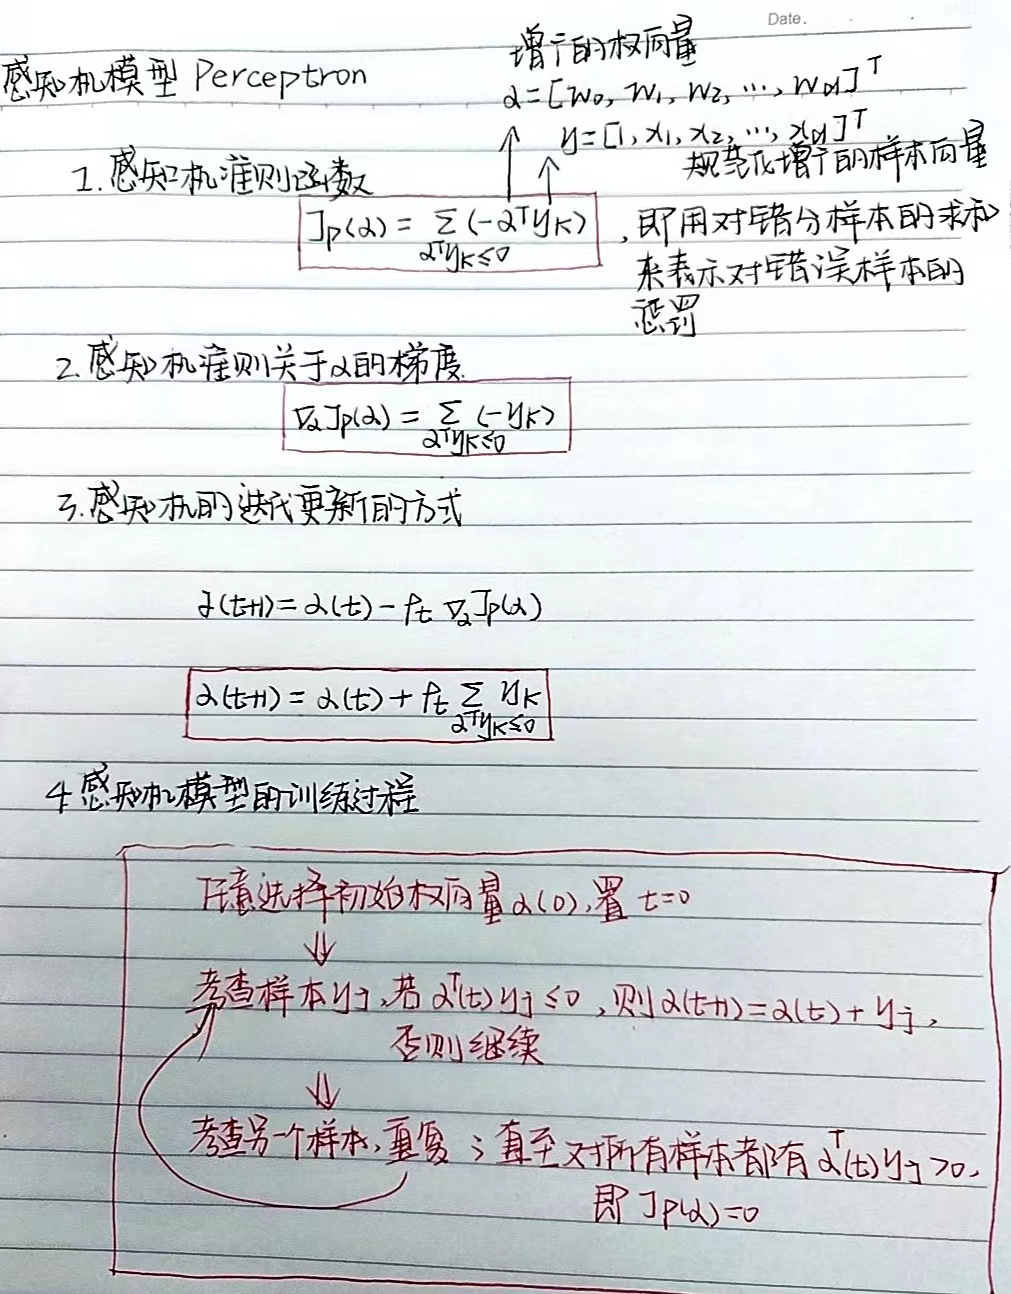 Date.
感知机模型 Perceptron
增广的权向量
α=[w₀, w₁, w₂, …, w_d]ᵀ
y=[1, x₁, x₂, …, x_d]ᵀ
规范化增广的样本向量
1.感知机准则函数
J_P(α) = Σ_{αᵀy_K≤0} (-αᵀy_K)
,即用对错分样本的求和
来表示对错误样本的
惩罚
2.感知机准则关于α的梯度.
∇_αJ_P(α) = Σ_{αᵀy_K≤0} (-y_K)
3.感知机的迭代更新的方式
α(t+1)=α(t)-ρ_t ∇_αJ_P(α)
α(t+1)=α(t)+ρ_t Σ_{αᵀy_K≤0} y_K
4.感知机模型的训练过程
任意选择初始权向量α(0),置 t=0
⇓
考查样本y_j,若αᵀ(t)y_j≤0,则α(t+1)=α(t)+y_j,
否则继续
⇓
考查另一个样本,重复;直至对所有样本都有αᵀ(t)y_j>0,
即J_P(α)=0